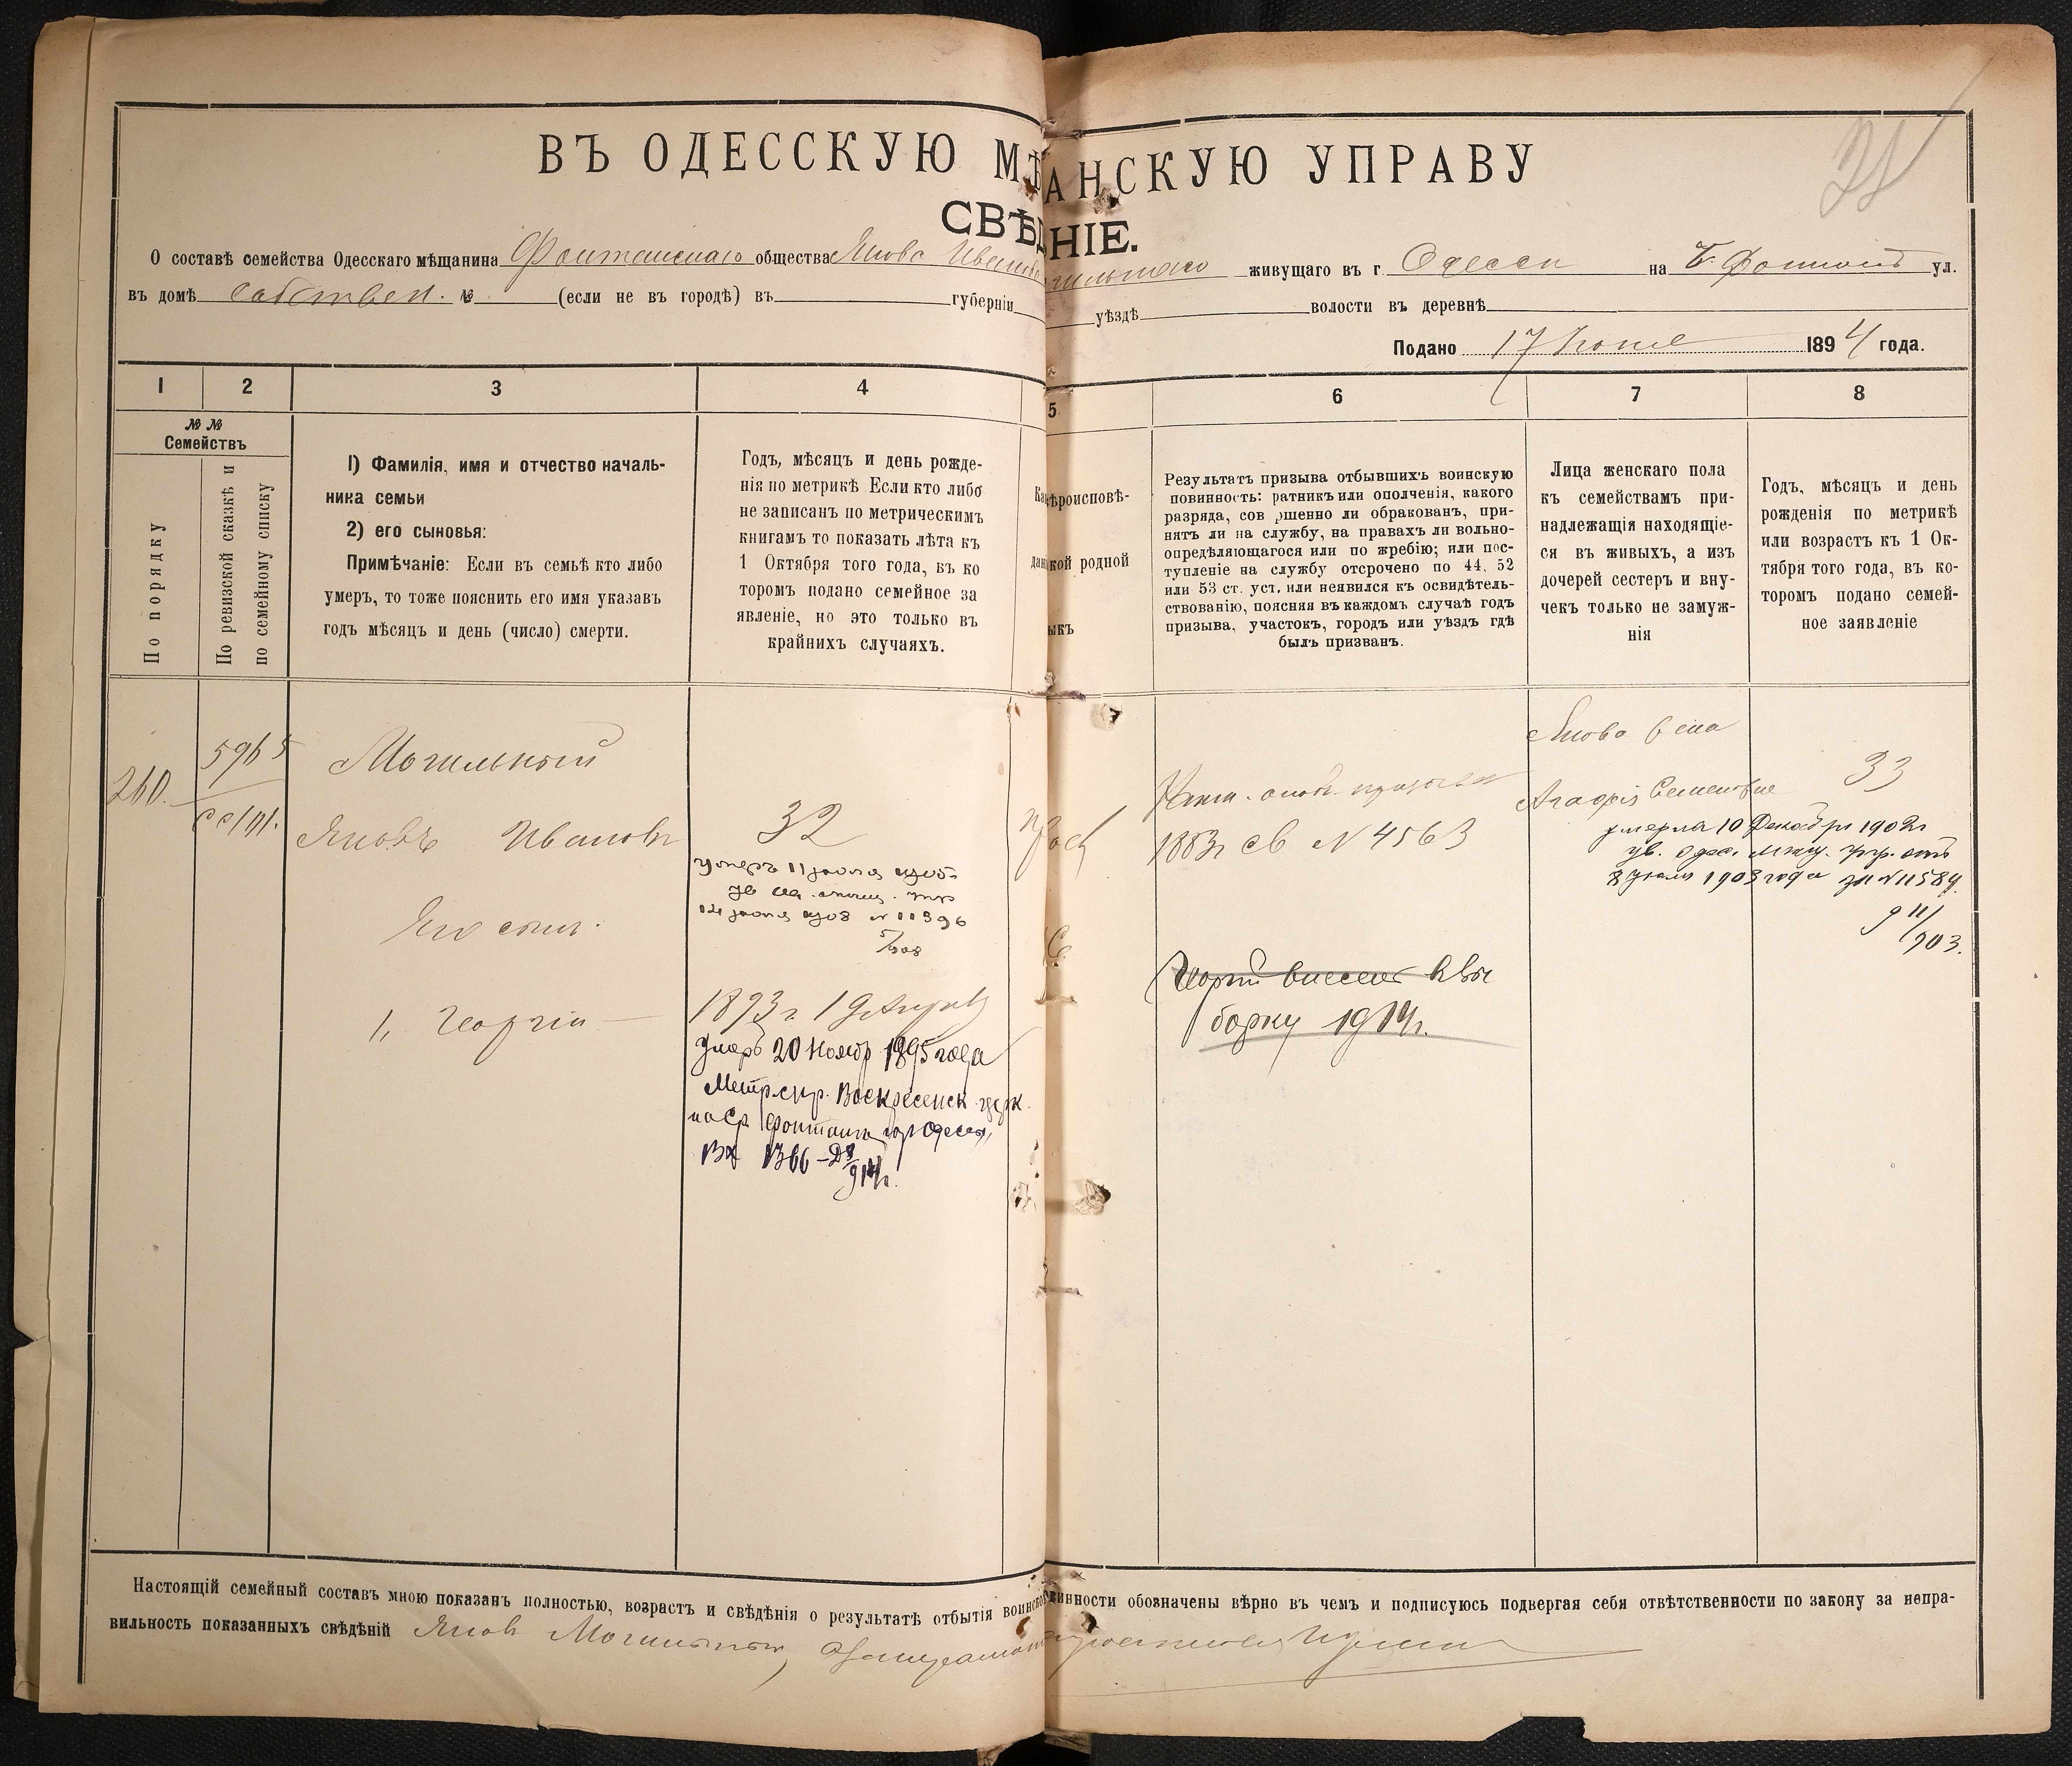 ВЪ ОДЕССКУЮ МѢ АНСКУЮ УПРАВУ
СВѢД НІЕ.
О составѣ семейства Одесскаго мѣщанина Фонтанскаго общества Якова Иванова живущаго въ г. Одессы на Б. Фонтанѣ ул.
въ домѣ собствен. № (если не въ городѣ) въ губерніи уѣздѣ волости въ деревнѣ
Подано 17 Іюня 1894 года.
1 2 3 4 5 6 7 8
№ №
Семействъ
По порядку
По ревизской сказкѣ и
по семейному списку
1) Фамилія, имя и отчество началь-
ника семьи
2) его сыновья:
Примѣчаніе: Если въ семьѣ кто либо
умеръ, то тоже пояснить его имя указавъ
годъ мѣсяцъ и день (число) смерти.
Годъ, мѣсяцъ и день рожде-
нія по метрикѣ Если кто либо
не записанъ по метрическимъ
книгамъ то показать лѣта къ
1 Октября того года, въ ко
торомъ подано семейное за
явленіе, но это только въ
крайнихъ случаяхъ.
Ка ѣроисповѣ-
дан кой родной
ыкъ
Результатъ призыва отбывшихъ воинскую
повинность: ратникъ или ополченія, какого
разряда, сов ршенно ли обракованъ, при-
нятъ ли на службу, на правахъ ли вольно-
опредѣляющагося или по жребію; или пос-
тупленіе на службу отсрочено по 44, 52
или 53 ст. уст, или неявился къ освидѣтель-
ствованію, поясняя въ каждомъ случаѣ годъ
призыва, участокъ, городъ или уѣздъ гдѣ
былъ призванъ.
Лица женскаго пола
къ семействамъ при-
надлежащія находящіе-
ся въ живыхъ, а изъ
дочерей сестеръ и вну-
чекъ только не замуж-
нія
Годъ, мѣсяцъ и день
рожденія по метрикѣ
или возрастъ къ 1 Ок-
тября того года, въ ко-
торомъ подано семей-
ное заявленіе
260.
5965
Могильный
Яковъ Ивановъ
32
умеръ 11 іюля
№ 11396
5/908
Его сынъ
1, Георгій
1893 г. 19 Апрѣл
Умеръ 20 Ноябр 1895 года
Метр. скр. Воскресенск. церк.
на Ср. Фонтанѣ гор Одессы,
Вх 1366
914 г.
прав
призыва
1883 г св № 4563
Георгій внесенъ въ вы
борку 1914 г.
Якова жена
Агафія Семеновна
33
умерла 10 Декабря 1902 г
ув. Одес. мѣщ. упр. отъ
8 Іюля 1903 года за № 11589.
9 11/903.
Настоящій семейный составъ мною показанъ полностью, возрастъ и свѣдѣнія о результатѣ отбытія воинско винности обозначены вѣрно въ чемъ и подписуюсь подвергая себя отвѣтственности по закону за непра-
вильность показанныхъ свѣдѣній Яковъ Могильный,